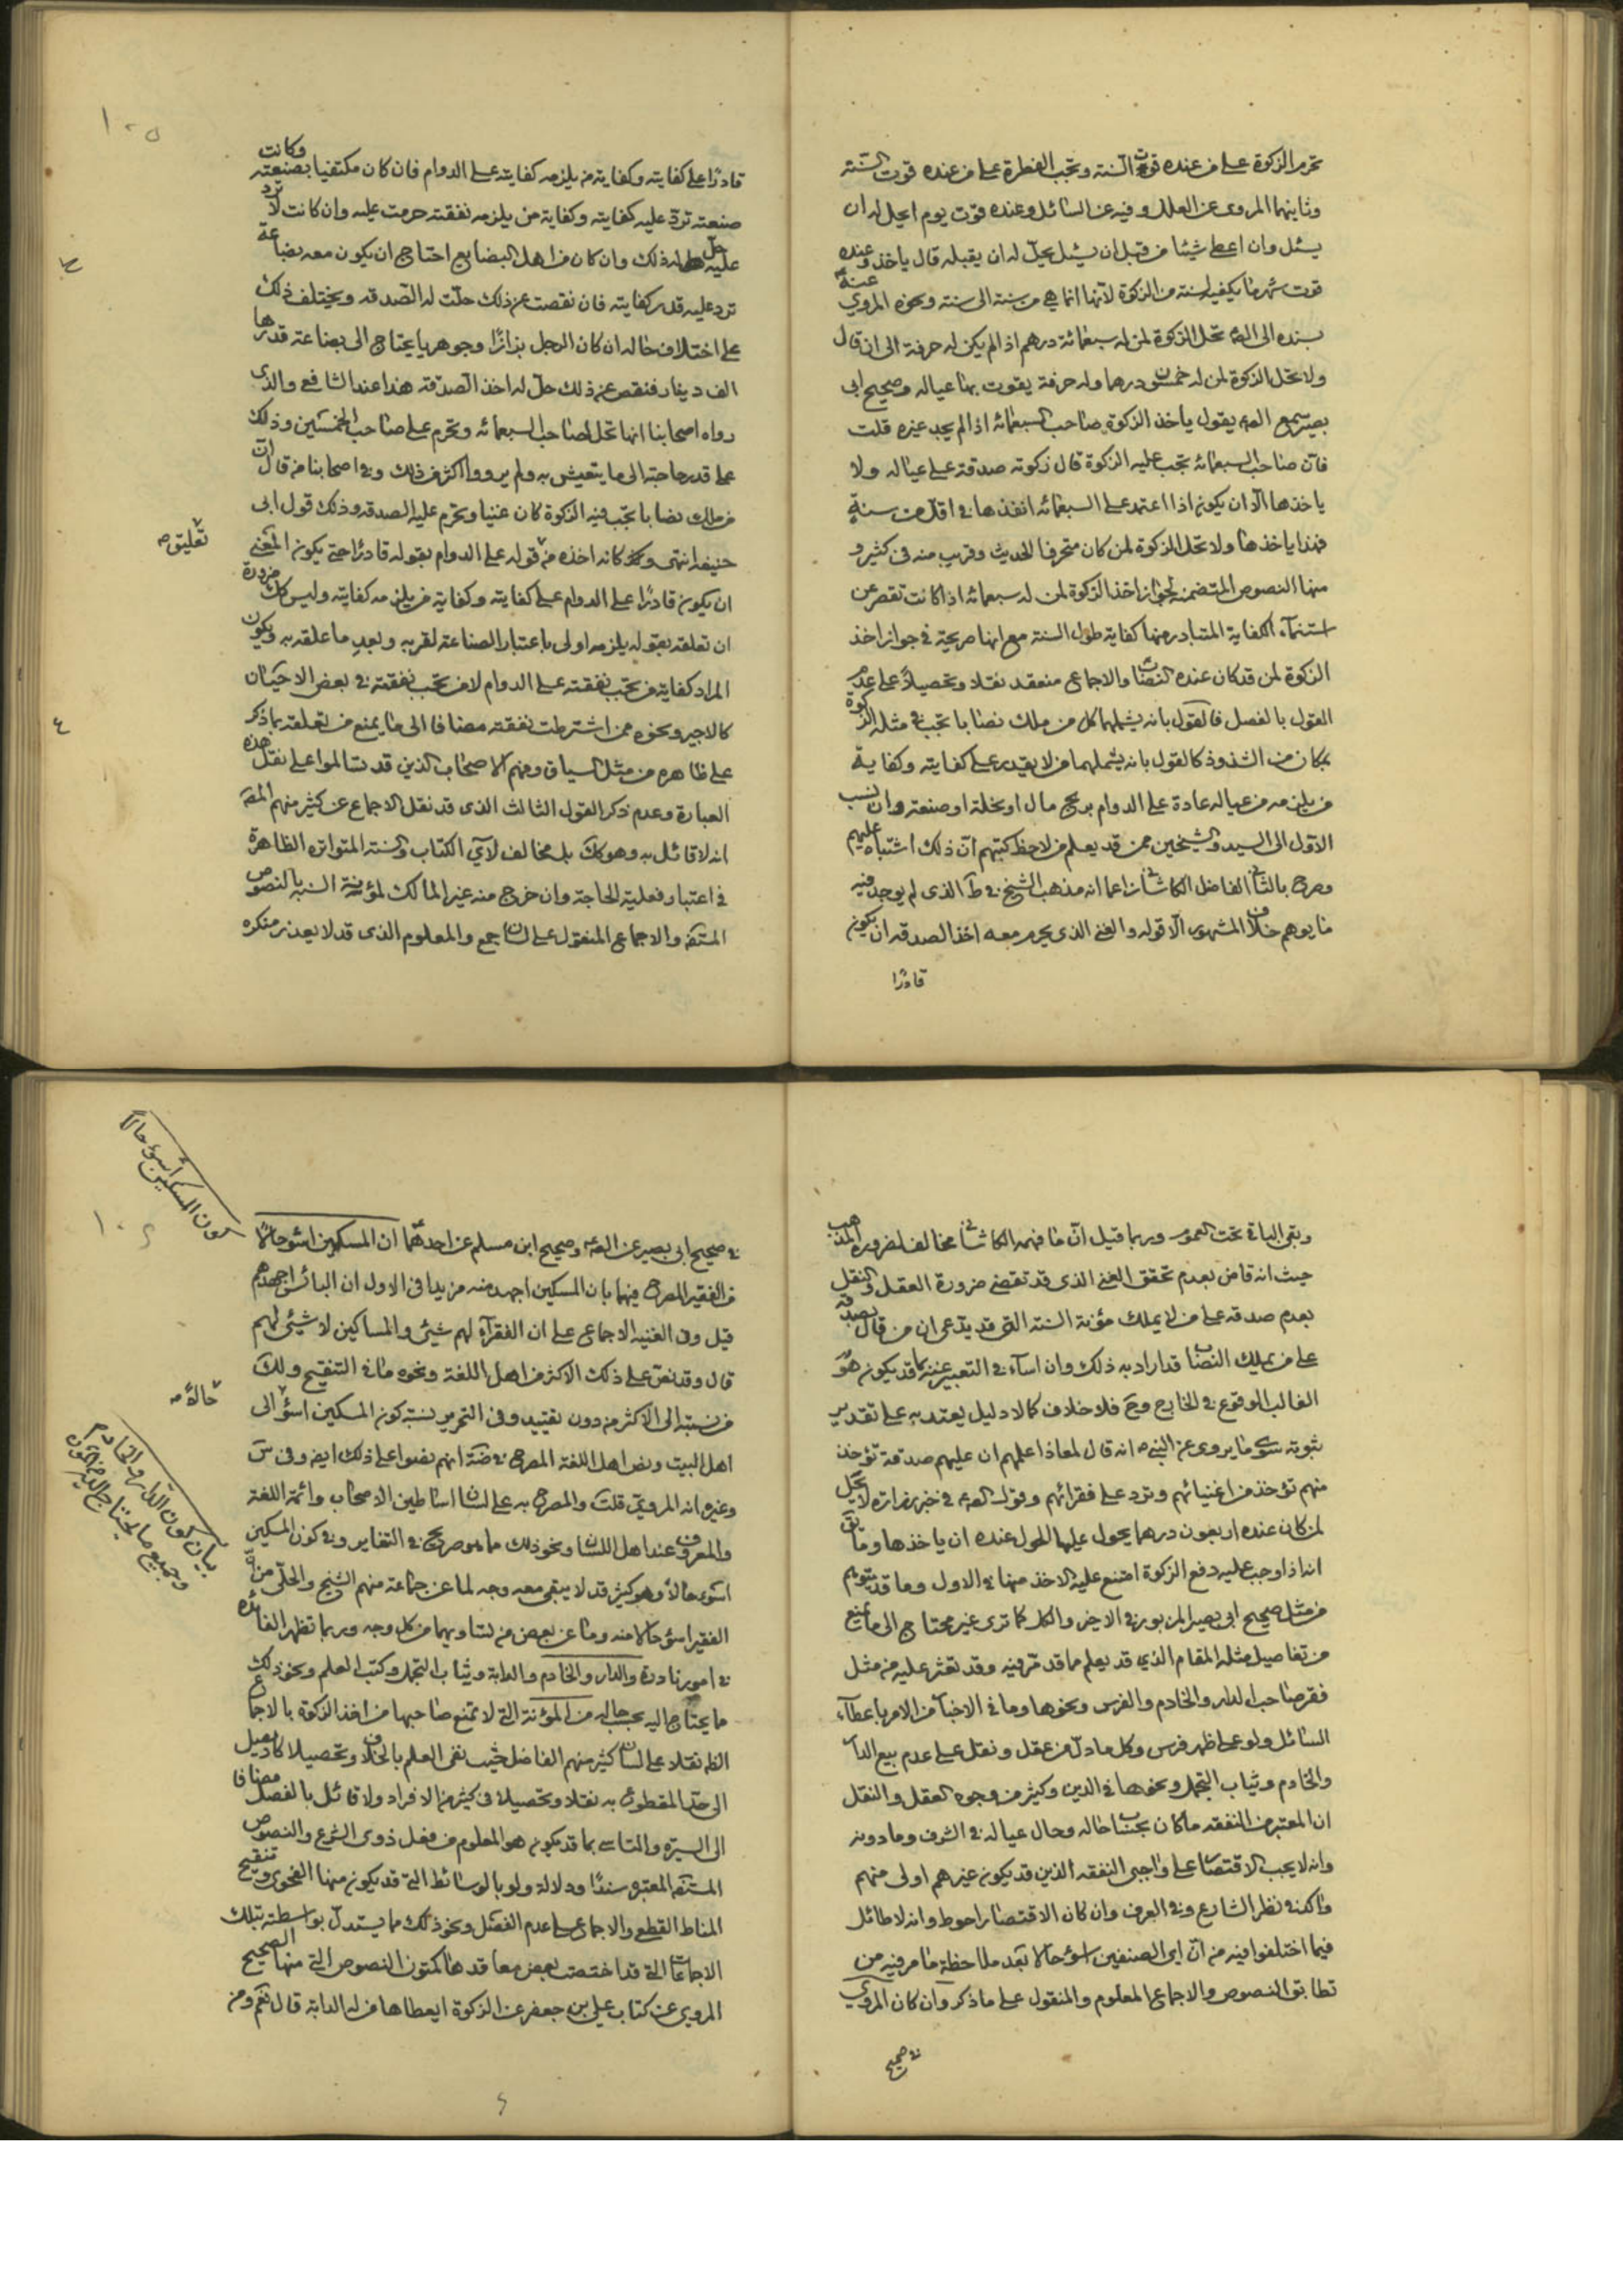 تحرم الزكوة على من عنده قوت السنة وتجب الفطرة على من عنده قوت السنة
وثانيهما المروى عن العلل وفيه عن السائل وعنده قوت يوم ايحل له ان
يسئل وان اعطى شيئا من قبل ان يسئل يحل له ان يقبله قال ياخذ وعنده
قوت شهر ما يكفيه لسنة من الزكوة لانها انما هى من سنة الى سنة ونحوه المروي عنه
بسنده الى الصم تحل الزكوة لمن له سبعمائة درهم اذا لم يكن له حرفة الى ان قال
ولا تحل الزكوة لمن له خمسون درهما وله حرفة يقوت بها عياله وصحيح ابى
بصير سمع الصم يقول ياخذ الزكوة صاحب السبعمائه اذا لم يجد غيره قلت
فان صاحب السبعمائه تجب عليه الزكوة قال زكوته صدقة على عياله ولا
ياخذها الا ان يكون اذا اعتمد على السبعمائه انفذها فى اقل من سنة
فهذا ياخذها ولا تحل الزكوة لمن كان محترفا الحديث وقريب منه فى كثير و
منها النصوص المتضمنة لجواز اخذ الزكوة لمن له سبعمائه اذا كانت تقصر عن
استنماء الكفاية المتبادر منها كفاية طول السنة مع انها صريحة فى جواز اخذ
الزكوة لمن قد كان عنده النصاب والاجماع منعقد نقلا وتحصيلا على عدم
القول بالفصل فالقول بانه يشملهما كل من ملك نصابا تجب فى مثله الزكوة
بمكان من الشذوذ كالقول بانه يشملهما من لا يقدر على كفايته وكفاية
من يلزمه من عياله عادة على الدوام بربح مال او غلة او صنعة وان نسب
الاول الى السيد والشيخين ممن قد يعلم من لاحظ كتبهم ان ذلك اشتباه عليهم
وصرح بالثانى الفاضل الكاشانى زاعما انه مذهب الشيخ فى ط الذى لم يوجد فيه
ما يوهم خلاف المشهور الا قوله والغنى الذى يحرم معه اخذ الصدقه ان يكون
قادرا
١٠٥
قادرا على كفايته وكفاية من يلزمه كفايته على الدوام فان كان مكتفيا بصنعته وكانت
صنعته ترد عليه كفايته وكفاية من يلزمه نفقته حرمت عليه وان كانت لا ترد
عليه حل له ذلك وان كان من اهل البضايع احتاج ان يكون معه بضاعة
ترد عليه قدر كفايته فان نقصت عن ذلك حلت له الصدقه ويختلف ذلك
على اختلاف حاله ان كان الرجل بزازا وجوهريا يحتاج الى بضاعة قدرها
الف دينار فنقص عن ذلك حل له اخذ الصدقه هذا عند الشافعى والذى
رواه اصحابنا انها تحل لصاحب السبعمائه وتحرم على صاحب الخمسين وذلك
على قدر حاجته الى ما يتعيش به ولم يرووا اكثر من ذلك وفى اصحابنا من قال ان
من ملك نصابا تجب فيه الزكوة كان غنيا وتحرم عليه الصدقه وذلك قول ابى
حنيفه انتهى وكانه اخذه من قوله على الدوام بقوله قادرا حتى يكون المعنى
تعليق صه
ان يكون قادرا على الدوام على كفايته وكفاية من يلزمه كفايته وليس كك ضرورة
ان تعلقه بقوله يلزمه اولى باعتبار الصناعة لقربه وبعد ما علقه به ويكون
المراد كفاية من تجب نفقته على الدوام لا من تجب نفقته فى بعض الاحيان
كالاجير ونحوه ممن اشترطت نفقته مضافا الى ما يمنع من تعلقه بما ذكر
على ظاهره من مثل السياق وفهم الاصحاب الذين قد تسالموا على نقل هذه
العبارة وعدم ذكر القول الثالث الذى قد نقل الاجماع عن كثير منهم المصر
انه لا قائل به وهو كك بل مخالف لآى الكتاب والسنه المتواتره الظاهرة
فى اعتبار فعلية الحاجة وان خرج منه غير المالك لمؤنة السنه بالنصوص
المستفه والاجماع المنقول على لسان جمع والمعلوم الذى قد لا يعذر منكره
وبقى الباقى تحت العموم وربما قيل ان ما فهمه الكاشانى مخالف لضرورة المذهب
حيث انه قاض بعدم تحقق الغنى الذى قد تقضى ضرورة العقل والنقل
بعدم صدقه على من لا يملك مؤنة السنه التى قد يدعى ان من قال بصدقه
على من يملك النصاب قد اراد به ذلك وان اساء فى التعبير عنه كما قد يكون هو
الغالب الوقوع فى الخارج وح فلا خلاف كما لا دليل يعتد به على تقدير
ثبوته سوى ما يروى عن النبى ص انه قال لمعاذ اعلمهم ان عليهم صدقة تؤخذ
منهم تؤخذ من اغنيائهم وترد على فقرائهم وقول الصم فى خبر زراره لا تحل
لمن كان عنده اربعون درهما يحول عليها الحول عنده ان ياخذها وما
انه اذا وجب عليه دفع الزكوة امتنع عليه الاخذ منها فى الاول وما قد يتوهم
من مثل صحيح ابى بصير المزبور فى الاخير والكل كما ترى غير محتاج الى ما يمنع
من تفاصيل مثله المقام الذي قد يعلم مما قد مر فيه وقد تعثر عليه من مثل
فقر صاحب الدار والخادم والفرس ونحوها وما فى الاخبار من الامر باعطاء
السائل ولو على ظهر فرس وكل ما دل من عقل ونقل على عدم بيع الدار
والخادم وثياب التجمل ونحوها فى الدين وكثير من وجوه العقل والنقل
ان المعتبر من النفقه ما كان بحسب حاله وحال عياله فى الشرف وما دونه
وانه لا يجب الاقتصار على واجبى النفقه الذين قد يكون غيرهم اولى منهم
واكد فى نظر الشارع وفى العرف وان كان الاقتصار احوط وانه لا طائل
فيما اختلفوا فيه من ان اى الصنفين اسؤ حالا بعد ملاحظة ما مر فيه من
تطابق النصوص والاجماع المعلوم والمنقول على ما ذكر وان كان المروي
فى صحيح
كون المسكين اسوء حالا
١٠٦
فى صحيح ابى بصير عن الصم وصحيح ابن مسلم عن احدهما ان المسكين اسؤ حالا
من الفقير المصرح فيهما بان المسكين اجهد منه مزيدا فى الاول ان البائس اجهدهم
قيل وفى الغنيه الاجماع على ان الفقراء لهم شئ والمساكين لا شئ لهم
قال وقد نص على ذلك الاكثر من اهل اللغة ونحوه ما فى التنقيح ولك
حالا صه
من نسبته الى الاكثر من دون تقييد وفى التحرير نسبة كون المسكين اسؤ الى
اهل البيت ونص اهل اللغة المصرح فى ضة انهم نصوا على ذلك ايضا وفى س
وغيره انه المروى قلت والمصرح به على لسان اساطين الاصحاب وائمة اللغة
والمعروف عند اهل اللسان ونحو ذلك مما هو صريح فى التغاير وفى كون المسكين
اسوء حالا وهو كثير قد لا يبقى معه وجه لما عن جماعة منهم الشيخ والحلى من ان
الفقير اسؤ حالا منه وما عن بعض من تساويهما من كل وجه وربما تظهر الفائده
بيان كون الدار والخادم
وجميع ما يحتاج اليه من المؤن
فى امور نادرة والدار والخادم والدابة وثياب التجمل وكتب العلم ونحو ذلك
ما يحتاج اليه بحسب حاله من المؤنة التى لا تمنع صاحبها من اخذ الزكوة بالاجماع
الظم نقلا على لسان كثير منهم الفاضل حيث نفى العلم بالخلاف وتحصيلا كاد يصل
الى حد المقطوع به نقلا وتحصيلا فى كثير من الافراد ولا قائل بالفصل مضافا
الى السيره والتاسى بما قد يكون هو المعلوم من فعل ذوى الشرع والنصوص
المستفه المعتبره سندا ودلالة ولو بالوسائط التى قد يكون منها الفحوى وتنقيح
المناط القطعى والاجماع على عدم الفصل ونحو ذلك مما يستدل بواسطته بتلك
الاجماعات التى قد اختصت بعض معاقدها كمتون النصوص التى منها الصحيح
المروي عن كتاب على بن جعفر عن الزكوة ايعطاها من له الدابة قال نعم ومن